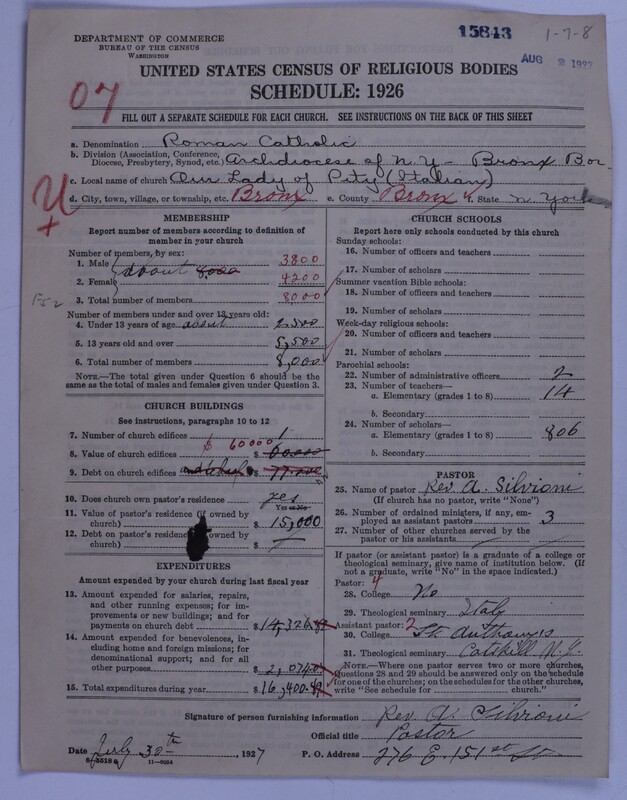 DEPARTMENT OF COMMERCE
BUREAU OF THE CENSUS
WASHINGTON
15843
1-7-8
AUG 2 192
UNITED STATES CENSUS OF RELIGIOUS BODIES
SCHEDULE: 1926
07
FILL OUT A SEPARATE SCHEDULE FOR EACH CHURCH. SEE INSTRUCTIONS ON THE BACK OF THIS SHEET
a. Denomination Roman Catholic
b. Division (Association, Conference, Diocese, Presbytery, Synod, etc.) Archdiocese of N.Y - Bronx Bor
c. Local name of church Our Lady of Pity (Italian)
d. City, town, village, or township, etc. Bronx e. County Bronx f. State N. York
U
+
MEMBERSHIP
Report number of members according to definition of
member in your church
Number of members, by sex:
1. Male 3800
about 8,000
2. Female 4200
3. Total number of members 8000
Number of members under and over 13 years old:
4. Under 13 years of age about 2,500
5. 13 years old and over 5,500
6. Total number of members 8,000
NOTE.—The total given under Question 6 should be
the same as the total of males and females given under Question 3.
CHURCH BUILDINGS
See instructions, paragraphs 10 to 12
7. Number of church edifices 1
$ 60000
8. Value of church edifices $ 60000
9. Debt on church edifices $
10. Does church own pastor's residence yes
Yes or No
11. Value of pastor's residence (if owned by
church) $ 15,000
12. Debt on pastor's residence owned by
church) $
EXPENDITURES
Amount expended by your church during last fiscal year
13. Amount expended for salaries, repairs,
and other running expenses; for im-
provements or new buildings; and for
payments on church debt $ 14,326
14. Amount expended for benevolences, in-
cluding home and foreign missions; for
denominational support; and for all
other purposes $ 2,074
15. Total expenditures during year $ 16,400
CHURCH SCHOOLS
Report here only schools conducted by this church
Sunday schools:
16. Number of officers and teachers
17. Number of scholars
Summer vacation Bible schools:
18. Number of officers and teachers
19. Number of scholars
Week-day religious schools:
20. Number of officers and teachers
21. Number of scholars
Parochial schools:
22. Number of administrative officers 2
23. Number of teachers—
a. Elementary (grades 1 to 8) 14
b. Secondary
24. Number of scholars—
a. Elementary (grades 1 to 8) 806
b. Secondary
PASTOR
25. Name of pastor Rev. A. Silvioni
(If church has no pastor, write "None")
26. Number of ordained ministers, if any, em-
ployed as assistant pastors 3
27. Number of other churches served by the
pastor or his assistants
If pastor (or assistant pastor) is a graduate of a college or
theological seminary, give name of institution below. (If
not a graduate, write "No" in the space indicated.)
Pastor: 4
28. College No
29. Theological seminary Italy
Assistant pastor: 2
30. College St. Anthony's
31. Theological seminary Catskill N.Y.
NOTE.—Where one pastor serves two or more churches,
Questions 28 and 29 should be answered only on the schedule
for one of the churches; on the schedules for the other churches,
write "See schedule for church."
Signature of person furnishing information Rev. A. Silvioni
Official title Pastor
Date July 30th, 1927 P. O. Address 276 E. 151st St
11—9054